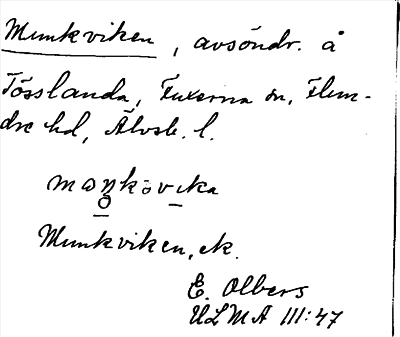 Munkviken, avsöndr. å
Tösslanda, Fuxerna sn, Flun-
dre hd, Älvsb. l.
Munkviken, ek.
E. Olbers
ULMA III:47